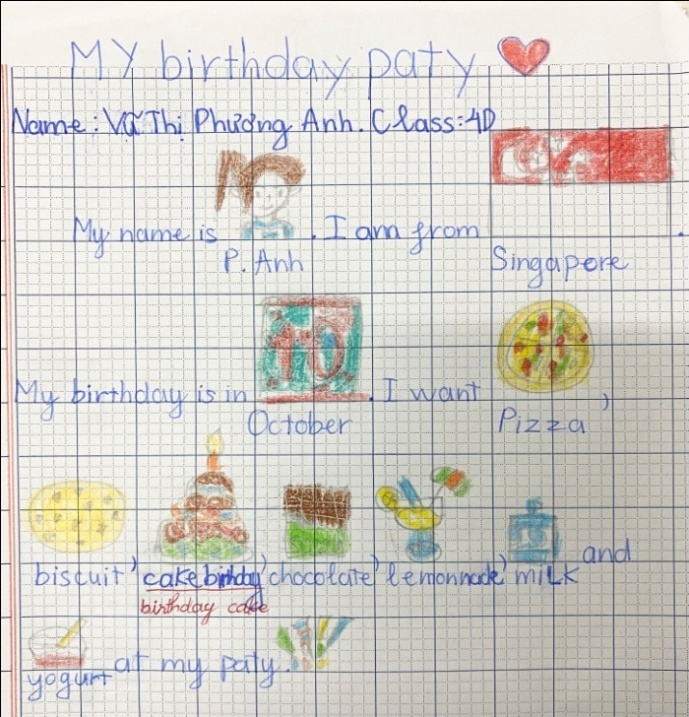 MY birthday paty
Name: Vũ Thị Phương Anh. Class: 4D
My name is . I am from .
P. Anh Singapore
10
My birthday is in . I want ,
October Pizza
biscuit, cake birthday, chocolate, lemonnade, milk and
birthday cake
yogurt at my paty.